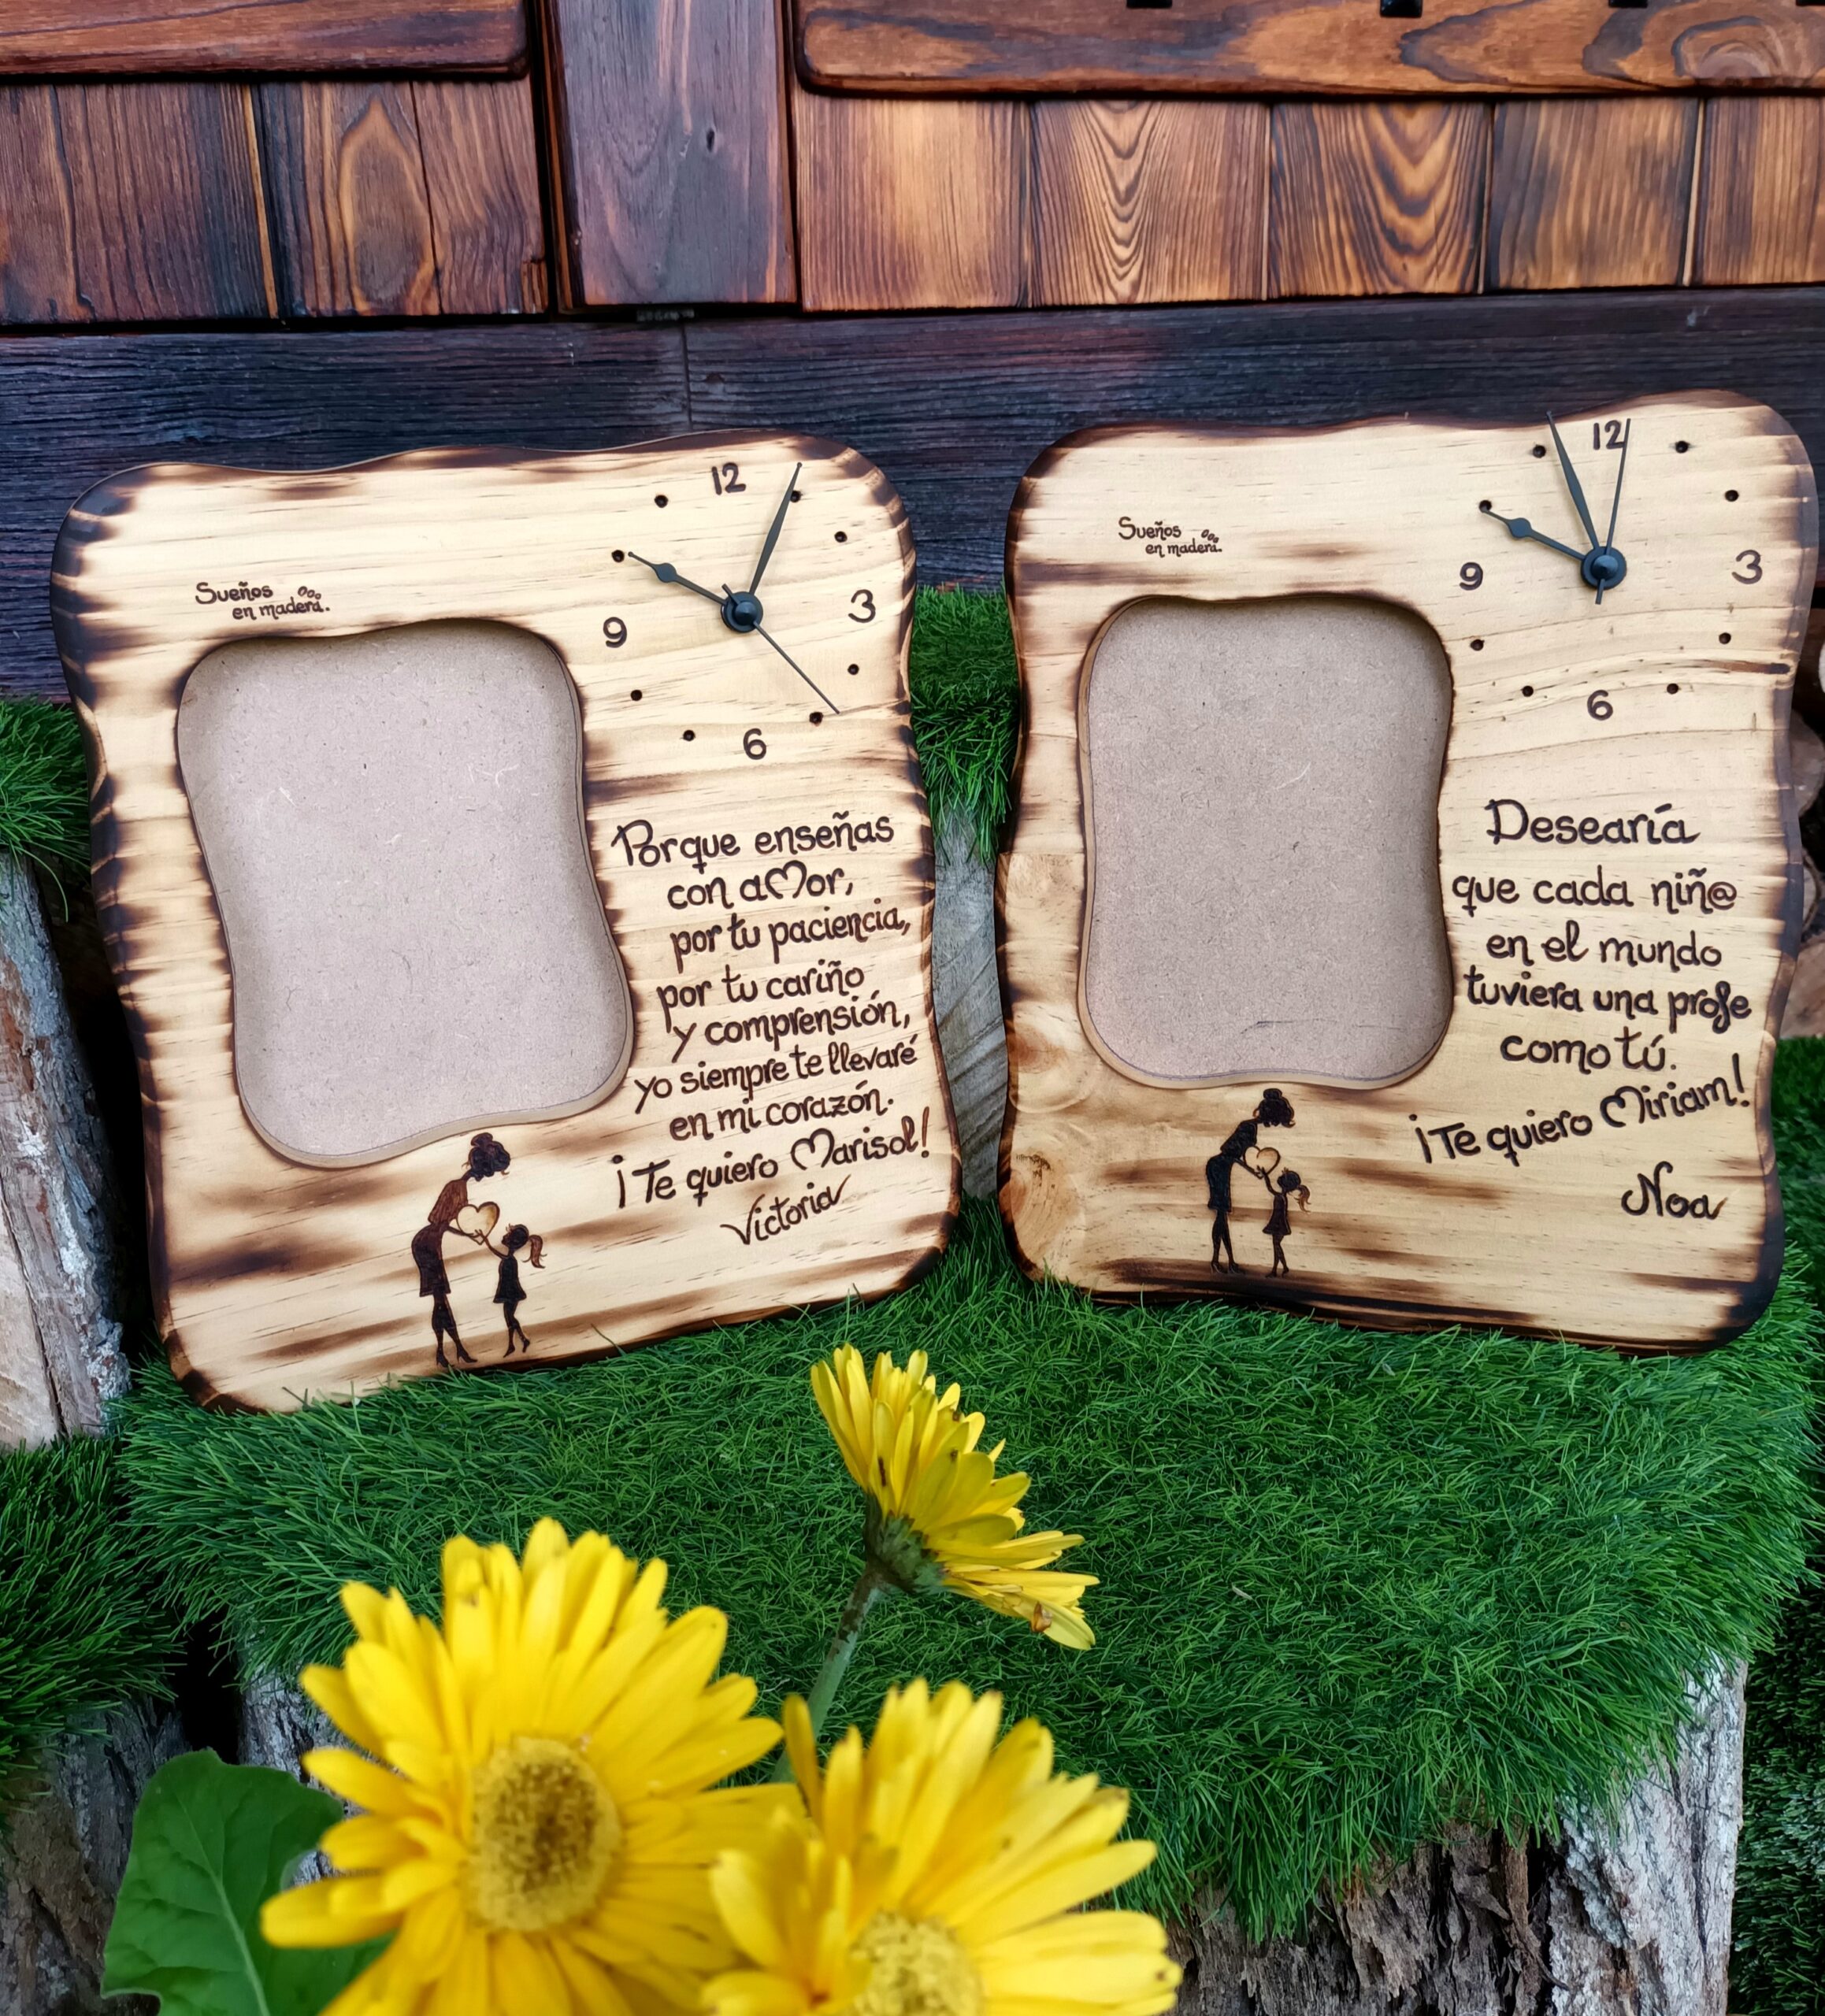 Sueños
en madera.
12
3
6
9
Porque enseñas
con amor,
por tu paciencia,
por tu cariño
y comprensión,
yo siempre te llevaré
en mi corazón.
¡Te quiero Marisol!
Victoria
Sueños
en madera.
12
3
6
9
Desearía
que cada niñ@
en el mundo
tuviera una profe
como tú.
¡Te quiero Miriam!
Noa